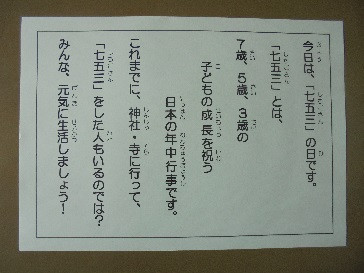 今日は、「七五三」の日です。
「七五三」とは、
7歳、5歳、3歳の
子どもの成長を祝う
日本の年中行事です。
これまでに、神社・寺に行って、
「七五三」をした人もいるのでは？
みんな、元気に生活しましょう！